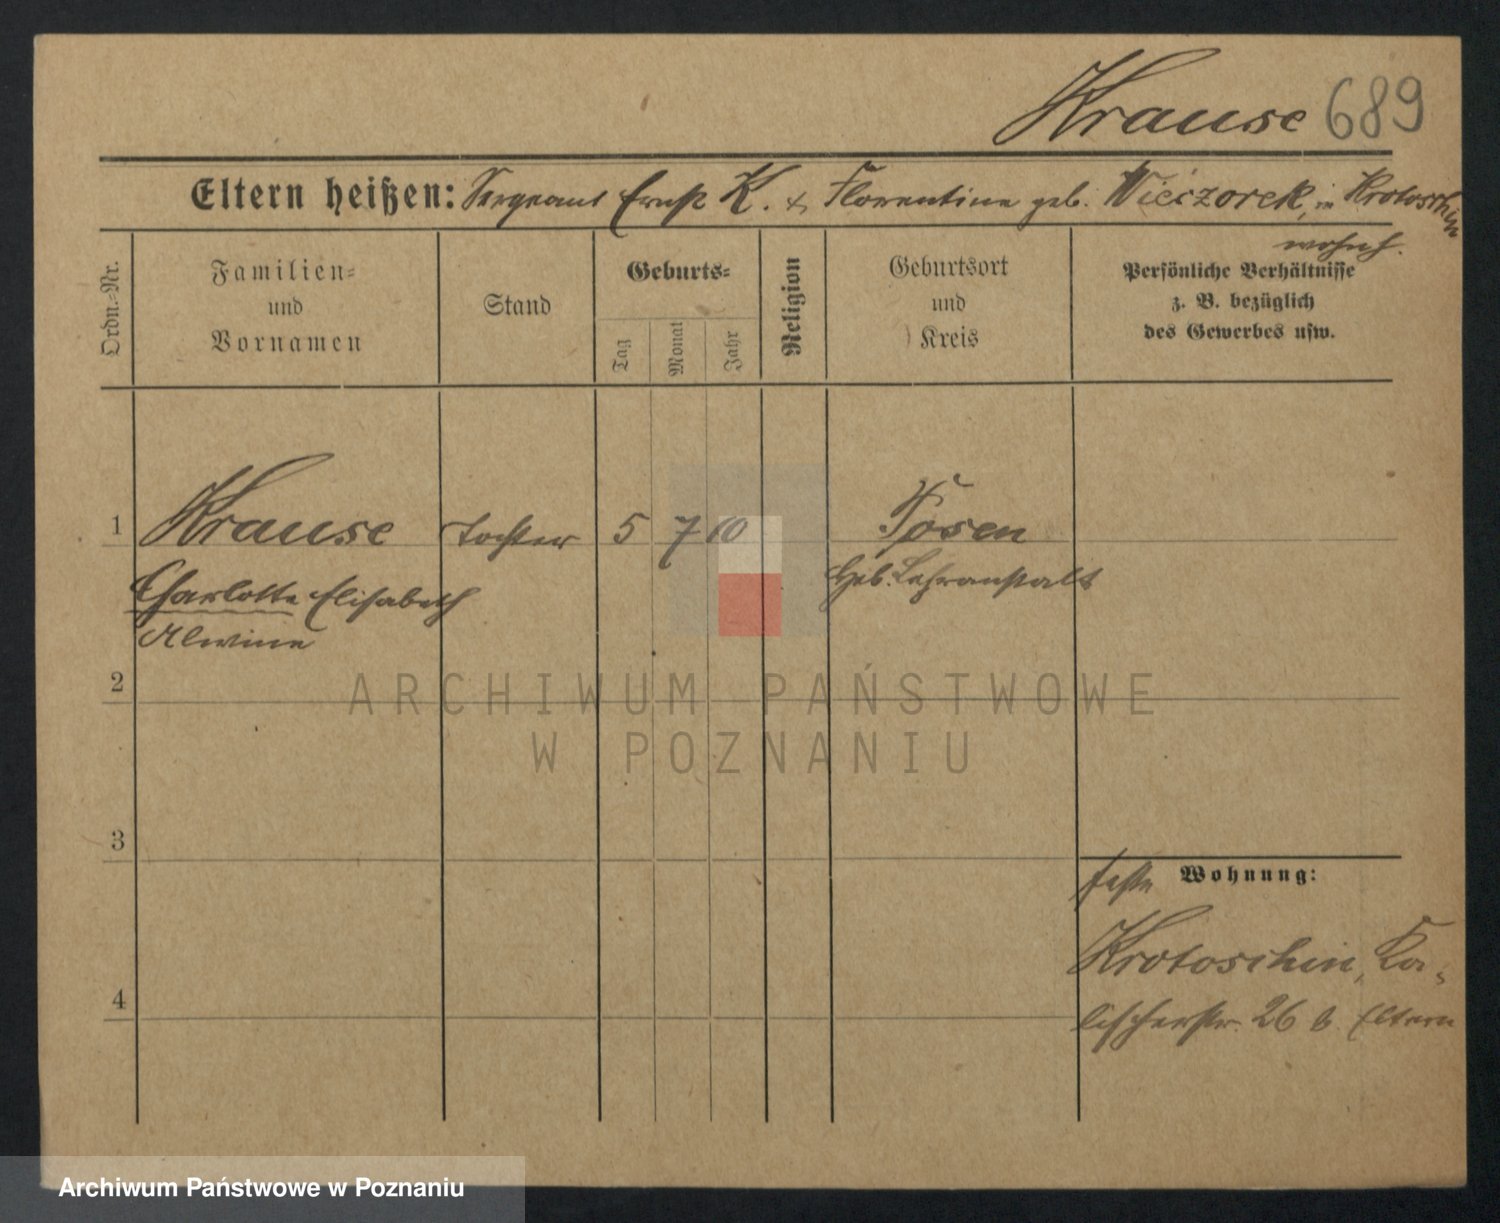 Krause 689
Eltern heißen: Sergeant Ernst K. & Florentine geb. Wieczorek, in Krotoschin
wohnh.
Ordn.-Nr.
Familien-
und
Vornamen
Stand
Geburts-
Tag
Monat
Jahr
Religion
Geburtsort
und
Kreis
Persönliche Verhältnisse
z. B. bezüglich
des Gewerbes usw.
1 Krause Tochter 5 7 10 Posen
Charlotte Elisabeth Heb. Lehranstalt
Alwine
2
ARCHIWUM PAŃSTWOWE
W POZNANIU
3
feste Wohnung:
Krotoschin, Ka-
4
lischerstr. 26 b. Eltern
Archiwum Państwowe w Poznaniu